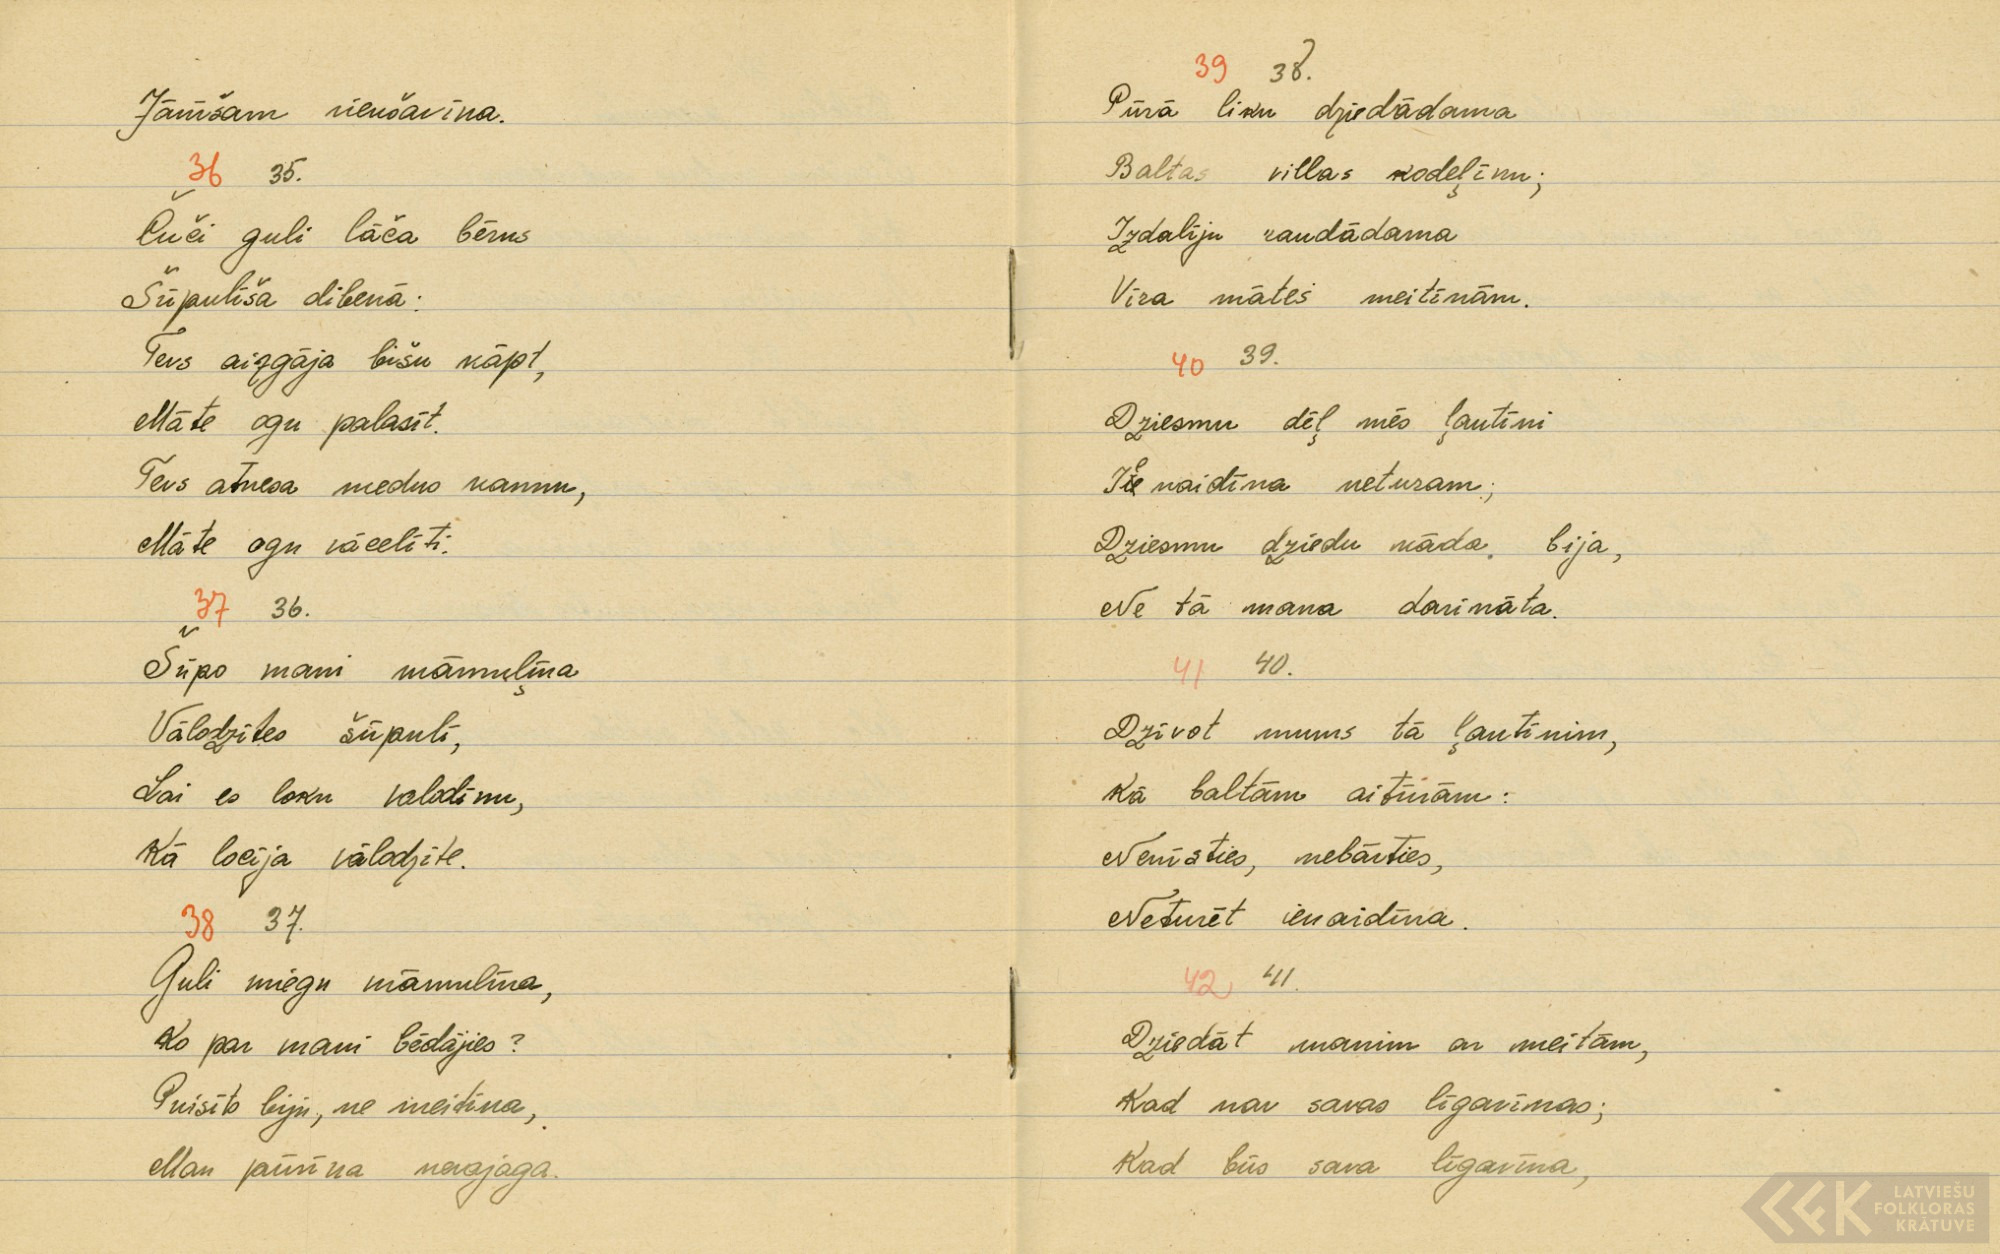 Jāmšam vienšavīna.
36 35.
Čuči guli lāča bērns
Šūpulīša dibenā:
Tevs aizgāja bišu kāpt,
Māte ogu palasīt.
Tevs atnesa medus kannu,
Māte ogu vācelīti.
37 36.
Šūpo mani māmuļīna
Vālodzītes šūpulī,
Lai es loku valodīnu,
Kā locīja vālodzīte.
38 37.
Guli miegu māmulīna,
Ko par mani bēdājies?
Puisīts biju, ne meitīna,
Man pūrīna nevajaga.
39 38.
Pūrā liku dziedādama
Baltas villas kodeļīnu;
Izdalīju raudādama
Vīra mātes meitīnām.
40 39.
Dziesmu dēļ mēs ļautīni
Ienaidīna neturam;
Dziesmu dziedu kāda bija,
Ne tā mana darināta.
41 40.
Dzīvot mums tā ļautīnim,
Kā baltām aitiņām:
Nenīsties, nebārties,
Neturēt ienaidīna.
42 41.
Dziedāt manim ar meitām,
Kad nav savas līgavīnas;
Kad būs sava līgavīna,
LATVIEŠU
FOLKLORAS
KRĀTUVE